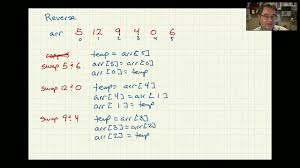 Reverse
arr 5 12 9 4 0 6
0 1 2 3 4 5
temp = arr[5]
swap 5 & 6 arr[5] = arr[0]
arr[0] = temp
swap 12 & 0 temp = arr[4]
arr[4] = arr[1]
arr[1] = temp
swap 9 & 4 temp = arr[3]
arr[3] = arr[2]
arr[2] = temp